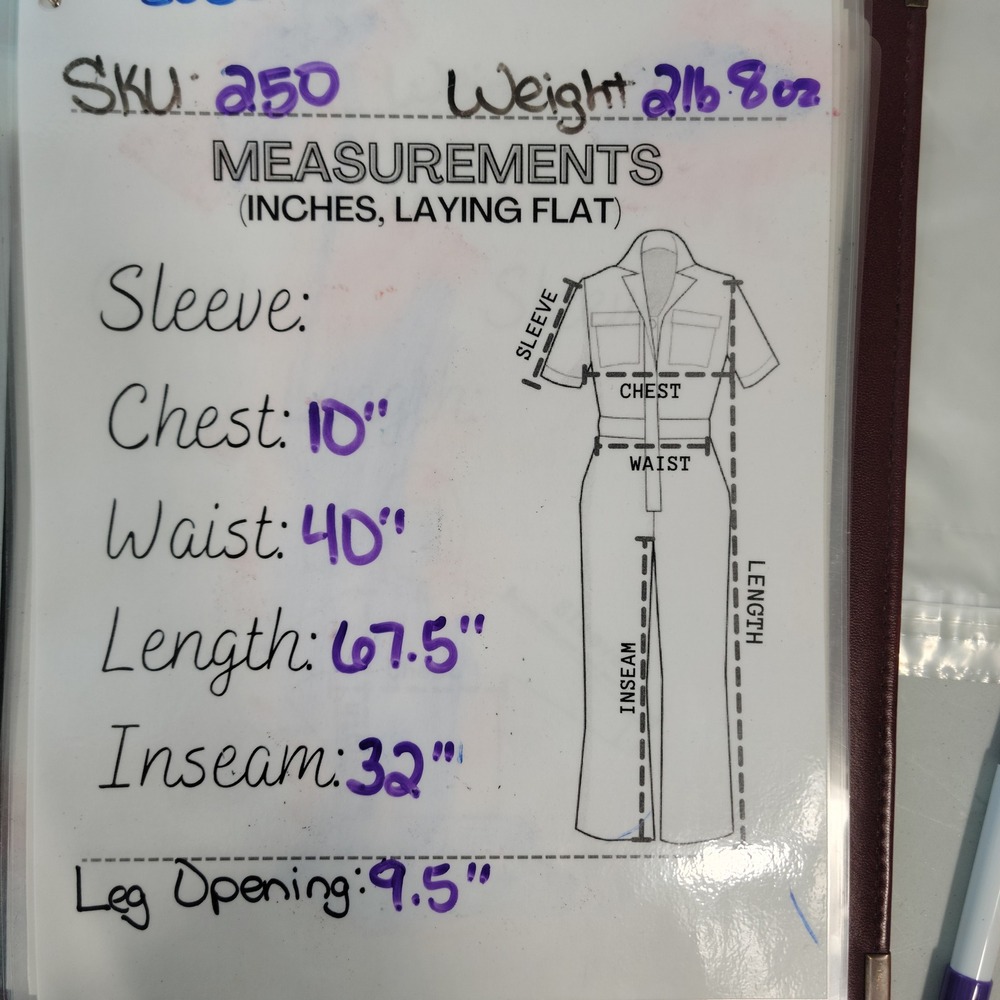 SKU: 250 Weight 2lb 8oz
MEASUREMENTS
(INCHES, LAYING FLAT)
Sleeve:
Chest: 10"
Waist: 40"
Length: 67.5"
Inseam: 32"
Leg Opening: 9.5"
SLEEVE
CHEST
WAIST
LENGTH
INSEAM